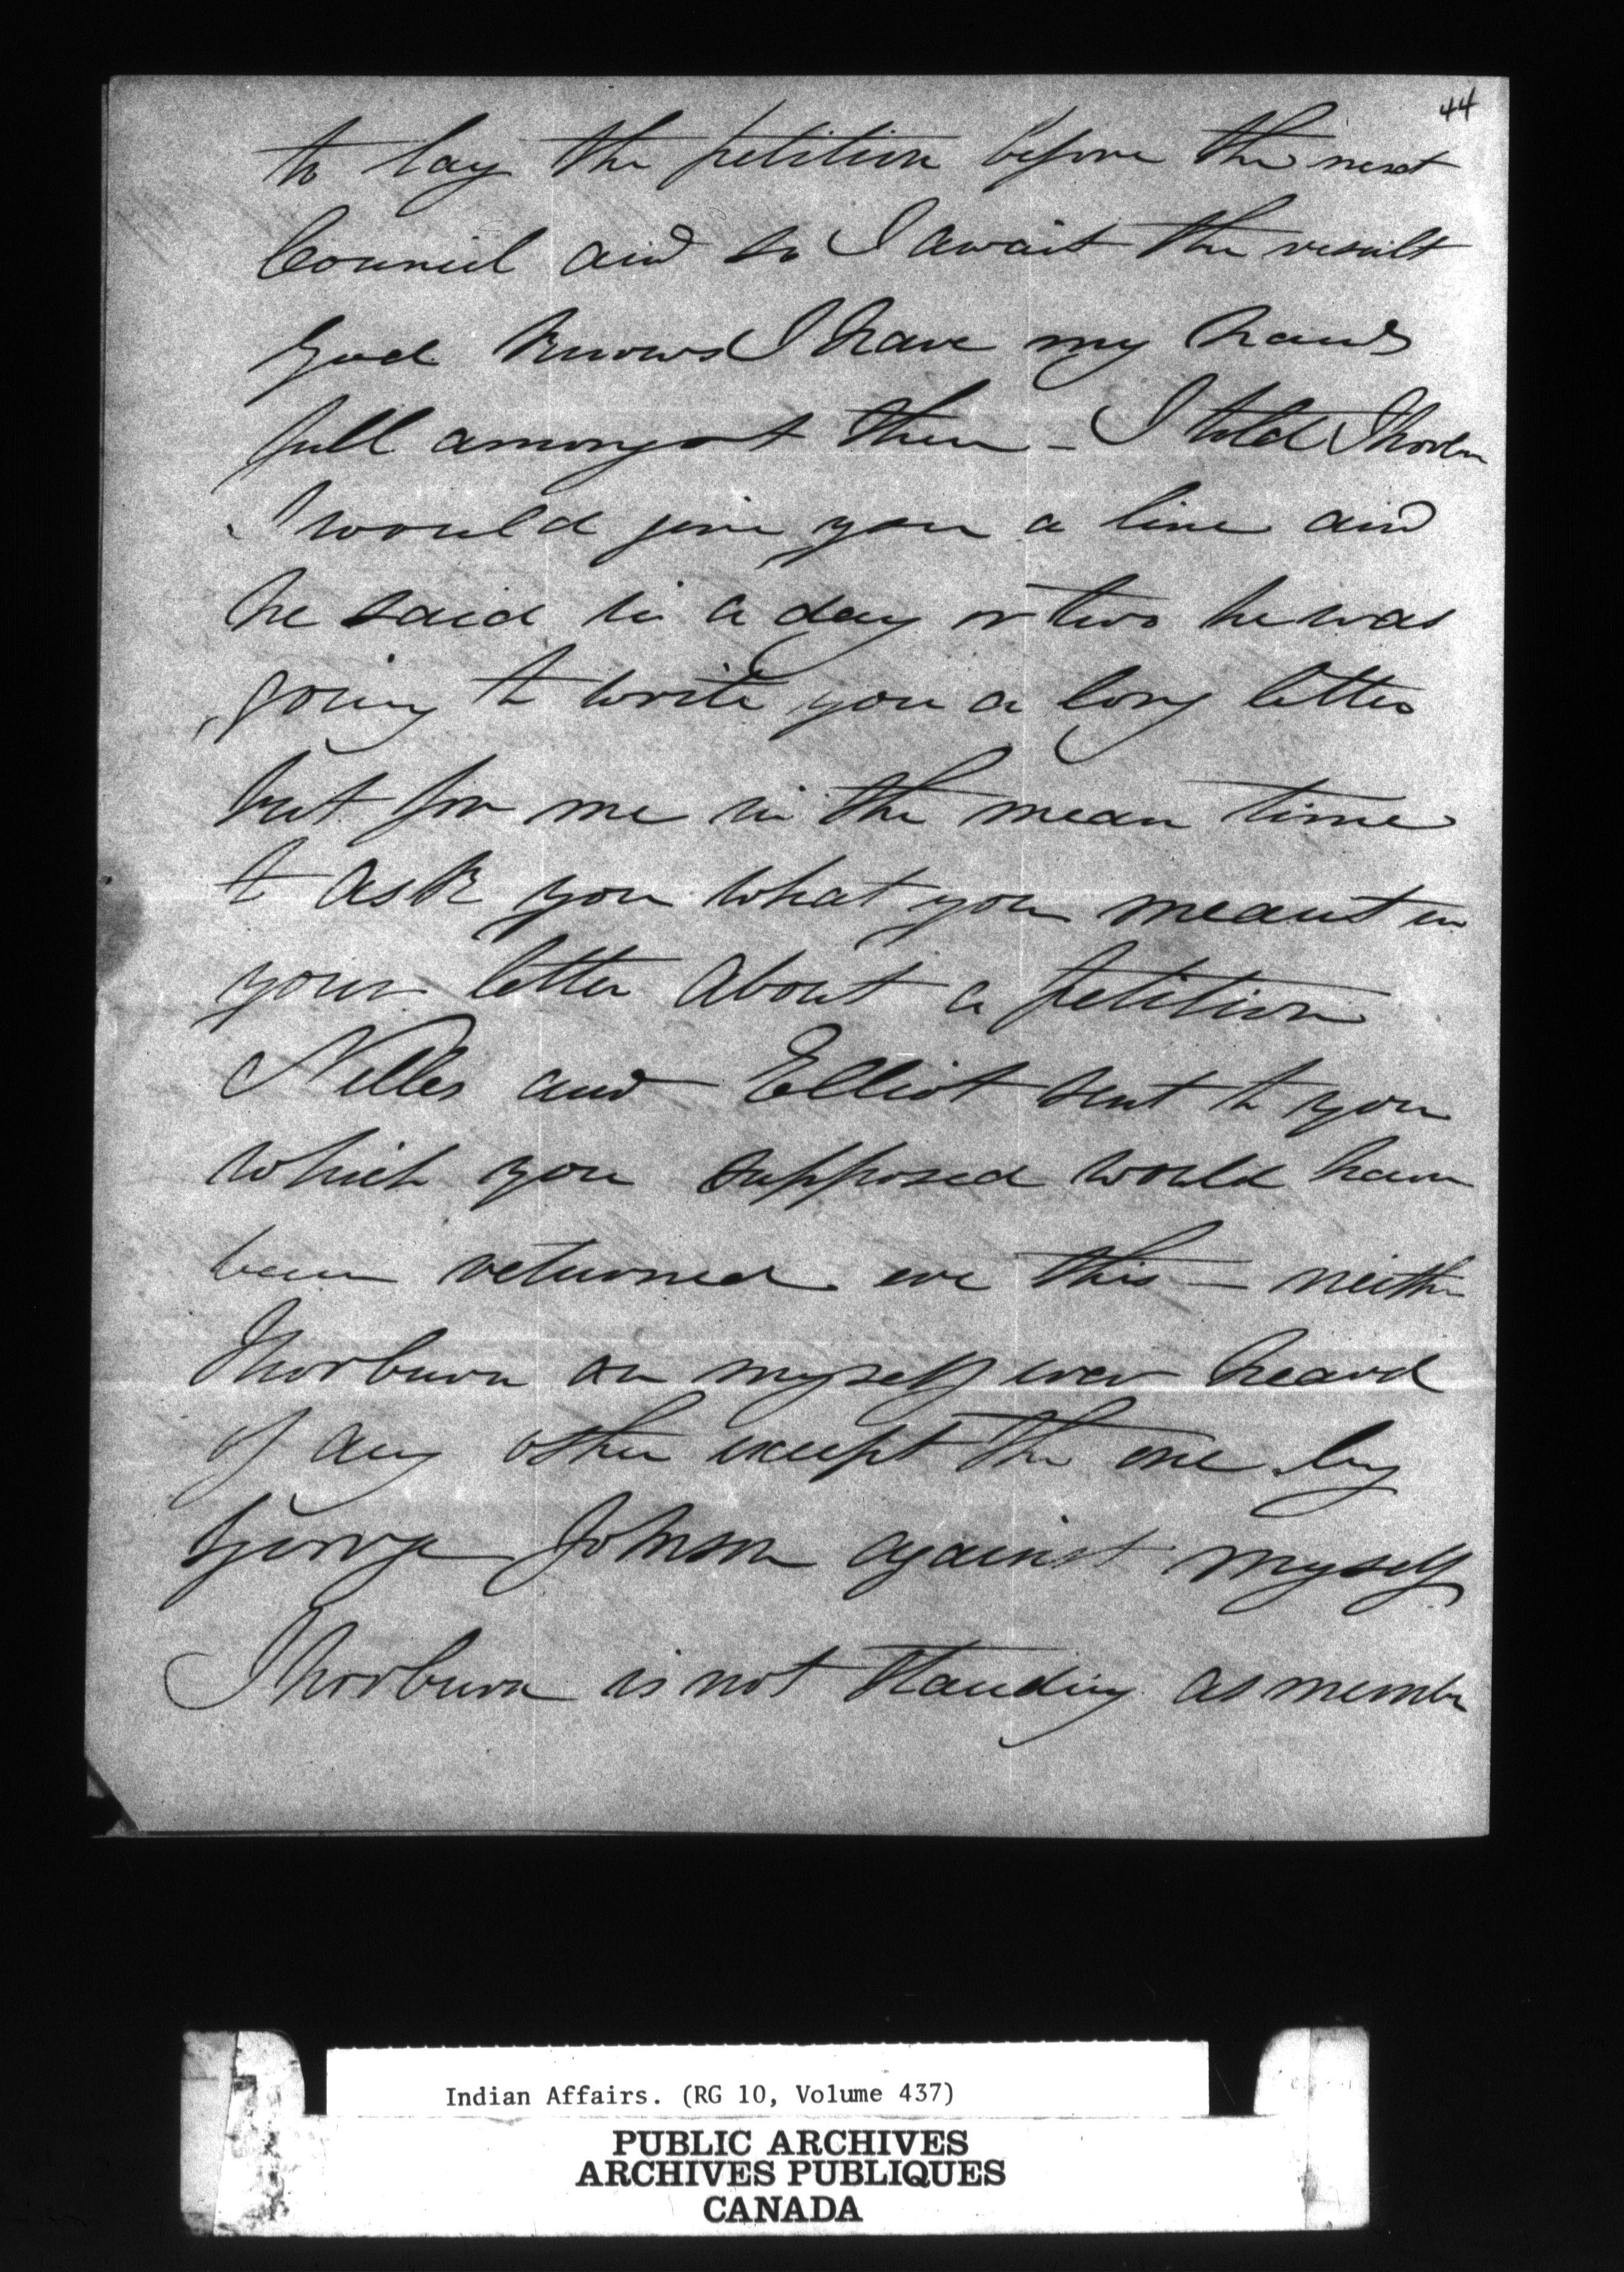 44
to lay the petition before the next
Council and so I await the result
God knows I have my hands
full amongst them - I told Thorbn
I would give you a line and
he said in a day or two he was
going to write you a long letter
but for me in the mean time
to ask you what you meant in
your letter about a petition
Nelles and Elliot sent to you
which you supposed would have
been returned ere this - neither
Thorburn or myself ever heard
of any other except the one by
George Johnson against myself
Thorburn is not standing as member
Indian Affairs. (RG 10, Volume 437)
PUBLIC ARCHIVES
ARCHIVES PUBLIQUES
CANADA